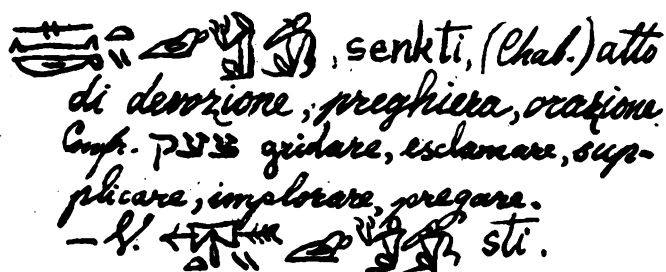 , senkti, (Chab.) atto
di devozione, preghiera, orazione.
Confr. צעק gridare, esclamare, sup-
plicare, implorare, pregare.
— V. sti.